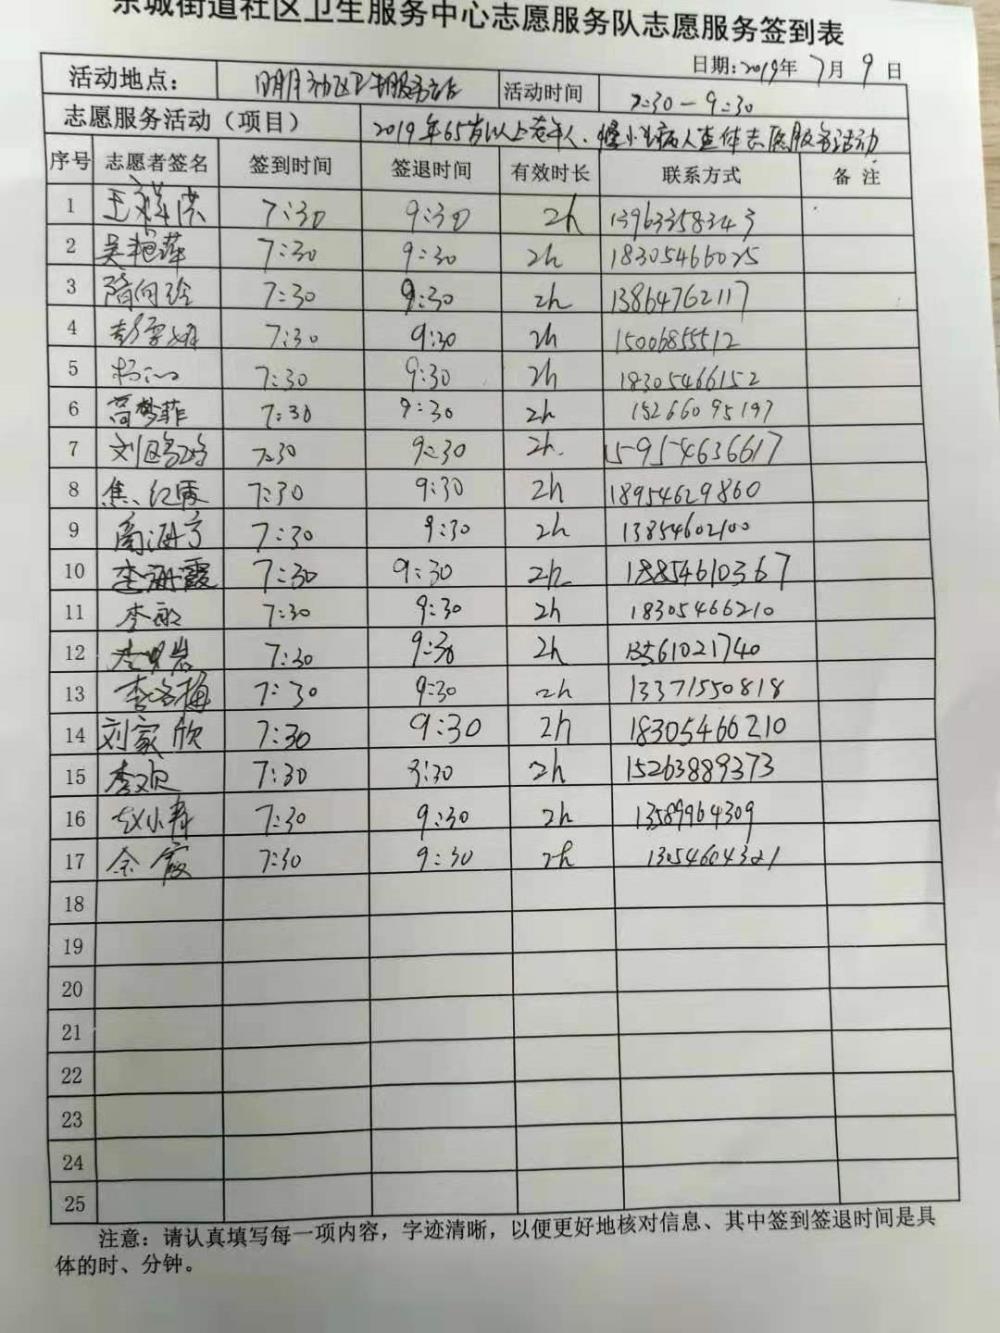 东城街道社区卫生服务中心志愿服务队志愿服务签到表
日期:2019年 7月 9日
活动地点: 明月社区卫生服务站 活动时间 7:30-9:30
志愿服务活动(项目) 2019年65岁以上老年人、慢性病人查体志愿服务活动
序号 志愿者签名 签到时间 签退时间 有效时长 联系方式 备 注
1 7:30 9:30 2h 13963358343
2 吴艳萍 7:30 9:30 2h 18305466025
3 隋向玲 7:30 9:30 2h 13864762117
4 彭雪娟 7:30 9:30 2h 15006855512
5 7:30 9:30 2h 18305466152
6 高梦菲 7:30 9:30 2h 15266095197
7 7:30 9:30 2h. 15954636617
8 焦纪霞 7:30 9:30 2h 18954629860
9 7:30 9:30 2h 13854602100
10 李海霞 7:30 9:30 2h 18854610367
11 李敏 7:30 9:30 2h 18305466210
12 7:30 9:30 2h 13561021740
13 7:30 9:30 2h 13371550818
14 刘家欣 7:30 9:30 2h 18305466210
15 李欢 7:30 9:30 2h 15263889373
16 赵小春 7:30 9:30 2h 13589964309
17 余霞 7:30 9:30 2h 13054604321
18
19
20
21
22
23
24
25
注意:请认真填写每一项内容,字迹清晰,以便更好地核对信息、其中签到签退时间是具
体的时、分钟。